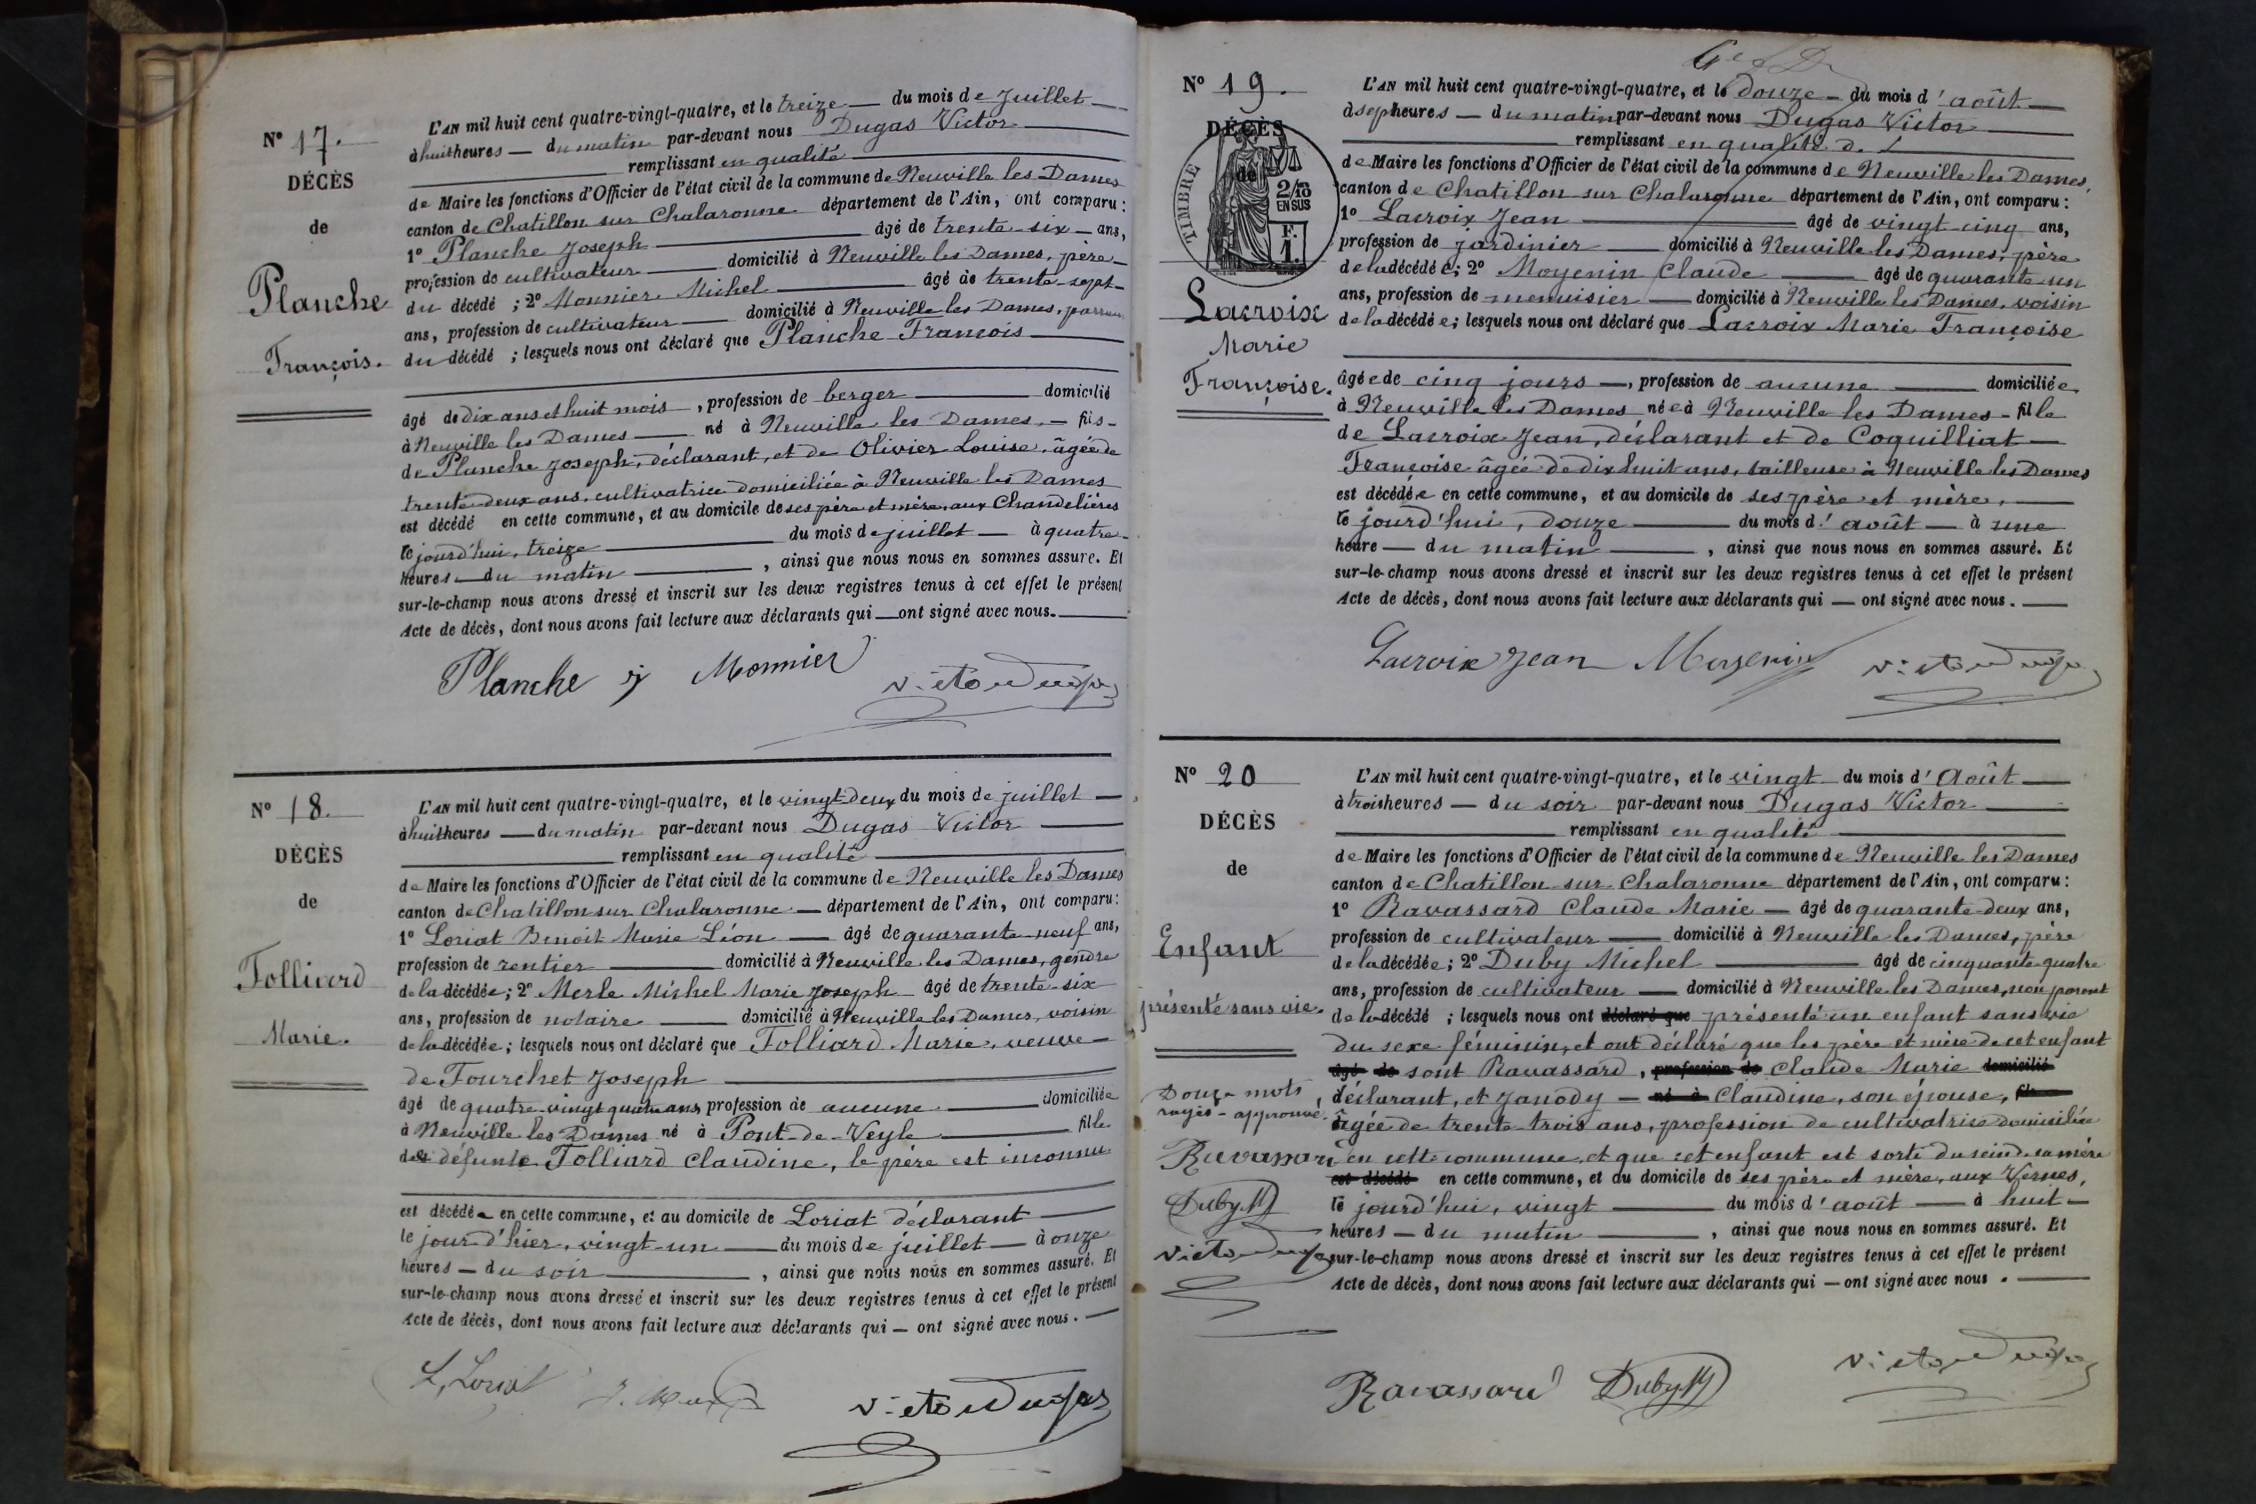 N° 17.
DÉCÈS
de
Planche
François.
L'AN mil huit cent quatre-vingt-quatre, et le treize — du mois de Juillet —
à huit heures — du matin par-devant nous Dugas Victor
remplissant en qualité
de Maire les fonctions d'Officier de l'état civil de la commune de Neuville les Dames
canton de Chatillon sur Chalaronne département de l'Ain, ont comparu :
1° Planche Joseph — âgé de trente-six — ans,
profession de cultivateur — domicilié à Neuville les Dames, père
du décédé ; 2° Monnier Michel — âgé de trente-sept
ans, profession de cultivateur — domicilié à Neuville les Dames,
du décédé ; lesquels nous ont déclaré que Planche François
âgé de dix ans et huit mois —, profession de berger — domicilié
à Neuville les Dames — né à Neuville les Dames — fils
de Planche Joseph, déclarant, et de Olivier Louise, âgée de
trente-deux ans, cultivatrice domiciliée à Neuville les Dames
est décédé en cette commune, et au domicile de ses père et mère, aux Chandelières
le jourd'hui, treize — du mois de juillet — à quatre
heures — du matin —, ainsi que nous nous en sommes assuré. Et
sur-le-champ nous avons dressé et inscrit sur les deux registres tenus à cet effet le présent
Acte de décès, dont nous avons fait lecture aux déclarants qui — ont signé avec nous.
Planche j Monnier Victor Dugas
N° 18.
DÉCÈS
de
Folliard
Marie.
L'AN mil huit cent quatre-vingt-quatre, et le vingt-deux du mois de juillet —
à huit heures — du matin par-devant nous Dugas Victor
remplissant en qualité
de Maire les fonctions d'Officier de l'état civil de la commune de Neuville les Dames
canton de Chatillon sur Chalaronne — département de l'Ain, ont comparu :
1° Loriat Benoit Marie Léon — âgé de quarante-neuf ans,
profession de rentier — domicilié à Neuville les Dames, gendre
de la décédée ; 2° Merle Michel Marie Joseph — âgé de trente-six
ans, profession de notaire — domicilié à Neuville les Dames, voisin
de la décédée ; lesquels nous ont déclaré que Folliard Marie, veuve
de Fourchet Joseph
âgé de quatre-vingt quatre ans, profession de aucune — domiciliée
à Neuville les Dames né à Pont-de-Veyle — fille
de défunte Folliard Claudine, le père est inconnu
est décédée en cette commune, et au domicile de Loriat déclarant
le jour d'hier, vingt-un — du mois de juillet — à onze
heures — du soir —, ainsi que nous nous en sommes assuré. Et
sur-le-champ nous avons dressé et inscrit sur les deux registres tenus à cet effet le présent
Acte de décès, dont nous avons fait lecture aux déclarants qui — ont signé avec nous.
L. Loriat Victor Dugas
N° 19.
DÉCÈS
de
TIMBRE
2/10
EN SUS
F.
1.
Lacroix
Marie
Françoise.
L'AN mil huit cent quatre-vingt-quatre, et le douze — du mois d'août —
à sept heures — du matin par-devant nous Dugas Victor
remplissant en qualité d.
de Maire les fonctions d'Officier de l'état civil de la commune de Neuville les Dames,
canton de Chatillon sur Chalaronne département de l'Ain, ont comparu :
1° Lacroix Jean — âgé de vingt-cinq ans,
profession de jardinier — domicilié à Neuville les Dames, père
de la décédée ; 2° Moyenin Claude — âgé de quarante-un
ans, profession de menuisier — domicilié à Neuville les Dames, voisin
de la décédée ; lesquels nous ont déclaré que Lacroix Marie Françoise
âgée de cinq jours —, profession de aucune — domiciliée
à Neuville les Dames née à Neuville les Dames — fille
de Lacroix Jean, déclarant et de Coquilliat —
Françoise âgée de dix huit ans, tailleuse à Neuville les Dames
est décédée en cette commune, et au domicile de ses père et mère,
le jourd'hui, douze — du mois d'août — à une
heure — du matin —, ainsi que nous nous en sommes assuré. Et
sur-le-champ nous avons dressé et inscrit sur les deux registres tenus à cet effet le présent
Acte de décès, dont nous avons fait lecture aux déclarants qui — ont signé avec nous.
Lacroix Jean Moyenin Victor Dugas
N° 20
DÉCÈS
de
Enfant
présenté sans vie.
Douze mots
rayés - approuvé.
Ravassard
Duby M
Victor Dugas
L'AN mil huit cent quatre-vingt-quatre, et le vingt — du mois d'Août —
à trois heures — du soir par-devant nous Dugas Victor
remplissant en qualité
de Maire les fonctions d'Officier de l'état civil de la commune de Neuville les Dames
canton de Chatillon sur Chalaronne département de l'Ain, ont comparu :
1° Ravassard Claude Marie — âgé de quarante-deux ans,
profession de cultivateur — domicilié à Neuville les Dames, père
de la décédée ; 2° Duby Michel — âgé de cinquante-quatre
ans, profession de cultivateur — domicilié à Neuville les Dames, non parent
de la décédé ; lesquels nous ont déclaré que présenté un enfant sans vie
du sexe féminin, et ont déclaré que les père et mère de cet enfant
âgé de sont Ravassard, profession de Claude Marie domicilié
déclarant, et Janody — né à Claudine, son épouse, fils
âgée de trente-trois ans, profession de cultivatrice domiciliée
en cette commune, et que cet enfant est sorti du sein de sa mère
est décédé en cette commune, et au domicile de ses père et mère, aux Vernes,
le jourd'hui, vingt — du mois d'août — à huit —
heures — du matin —, ainsi que nous nous en sommes assuré. Et
sur-le-champ nous avons dressé et inscrit sur les deux registres tenus à cet effet le présent
Acte de décès, dont nous avons fait lecture aux déclarants qui — ont signé avec nous.
Ravassard Duby M Victor Dugas